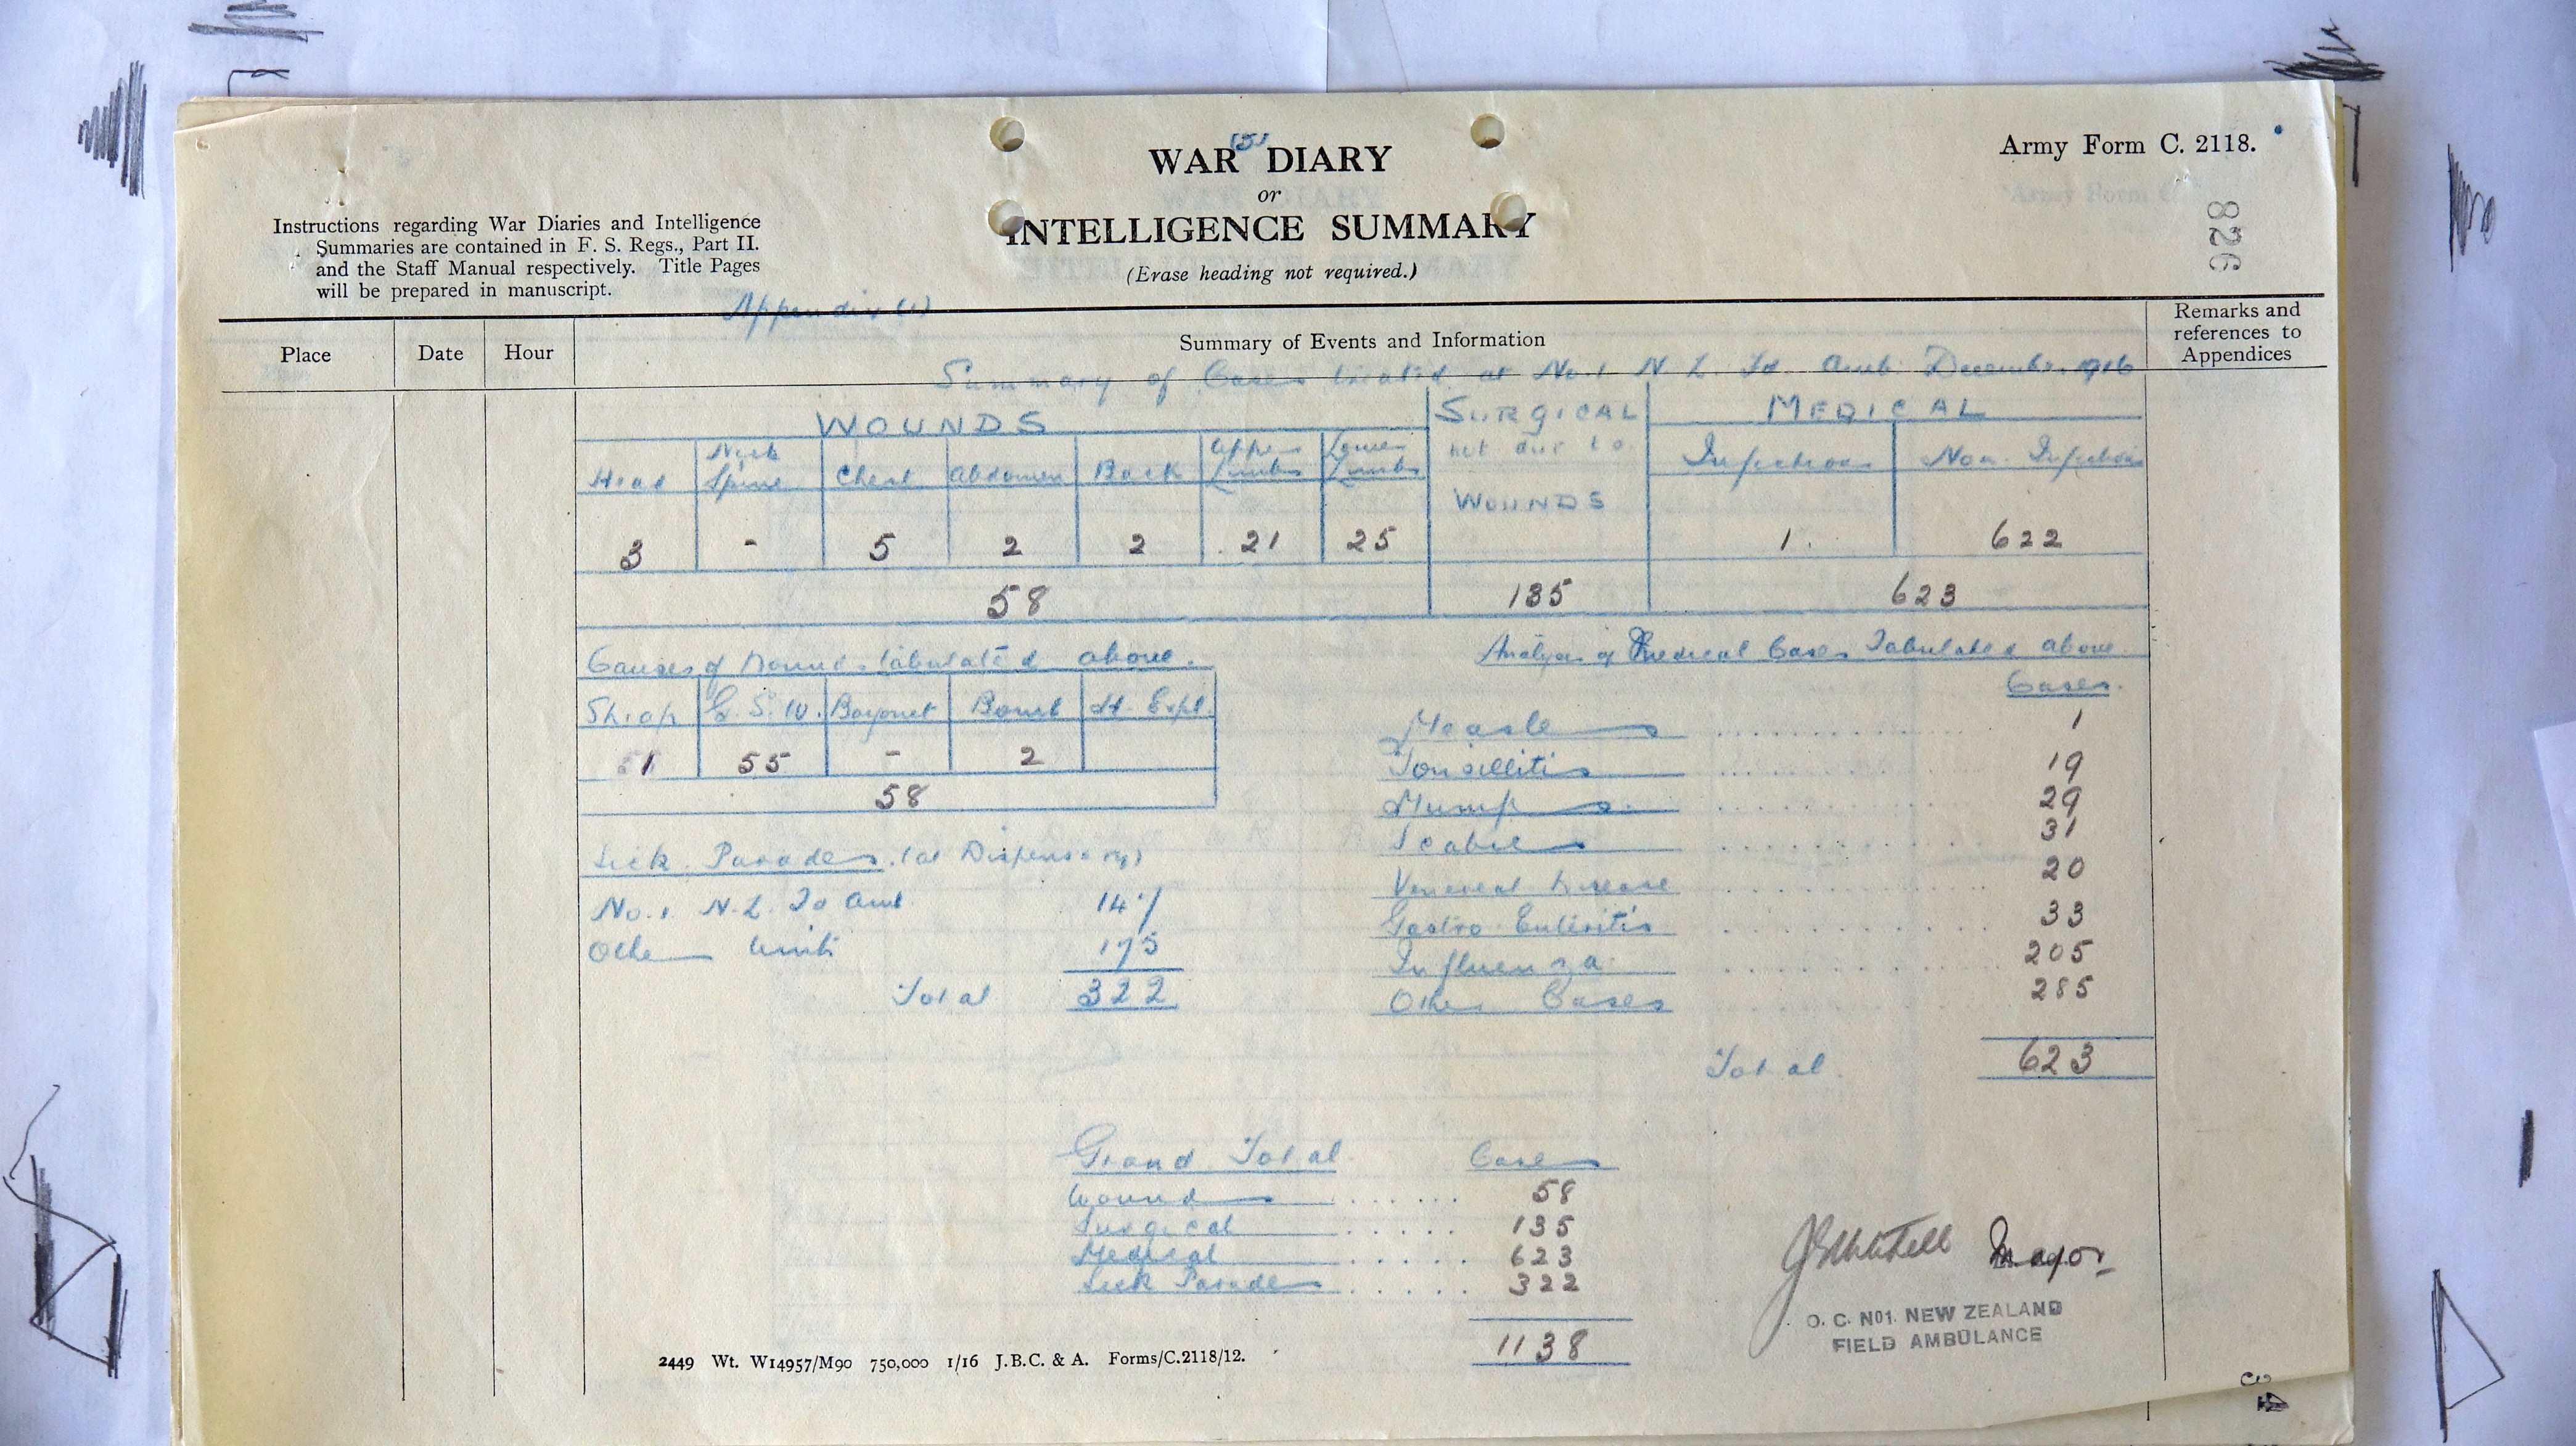 (5)
WAR DIARY
or
INTELLIGENCE SUMMARY
(Erase heading not required.)
Army Form C. 2118.
826
Instructions regarding War Diaries and Intelligence
Summaries are contained in F. S. Regs., Part II.
and the Staff Manual respectively. Title Pages
will be prepared in manuscript.
Appendix (1)
Place Date Hour Summary of Events and Information Remarks and references to Appendices
Summary of Cases treated at No. 1 N. Z. Fd. Amb. December 1916
WOUNDS SURGICAL not due to WOUNDS MEDICAL
Head Neck Spine Chest Abdomen Back Upper Limbs Lower Limbs Infectious Non. Infectious
3 - 5 2 2 21 25 1. 622
58 135 623
Causes of Wounds tabulated above.
Shrap G. S. W. Bayonet Bomb Ht. Expl.
1 55 - 2
58
Sick Parades. (at Dispensary)
No. 1. N. Z. Fd Amb. 147
Other Units 175
Total 322
Analysis of Medical Cases Tabulated above
Cases.
Measles 1
Tonsillitis 19
Mumps 29
Scabies 31
Venereal Disease 20
Gastro Enteritis 33
Influenza 205
Other Cases 285
Total. 623
Grand Total Cases
Wounds 58
Surgical 135
Medical 623
Sick Parades 322
1138
Major
O. C. No1. NEW ZEALAND
FIELD AMBULANCE
2449 Wt. W14957/M90 750,000 1/16 J.B.C. & A. Forms/C.2118/12.